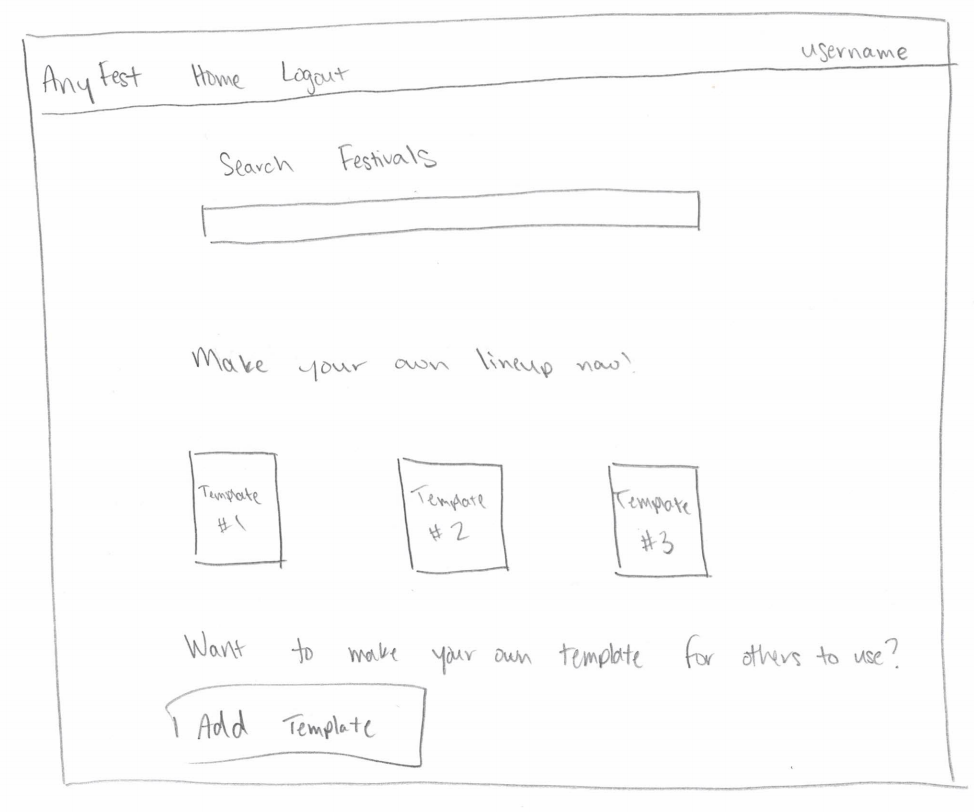 AnyFest Home Logout username
Search Festivals
Make your own lineup now!
Template #1
Template #2
Template #3
Want to make your own template for others to use?
Add Template